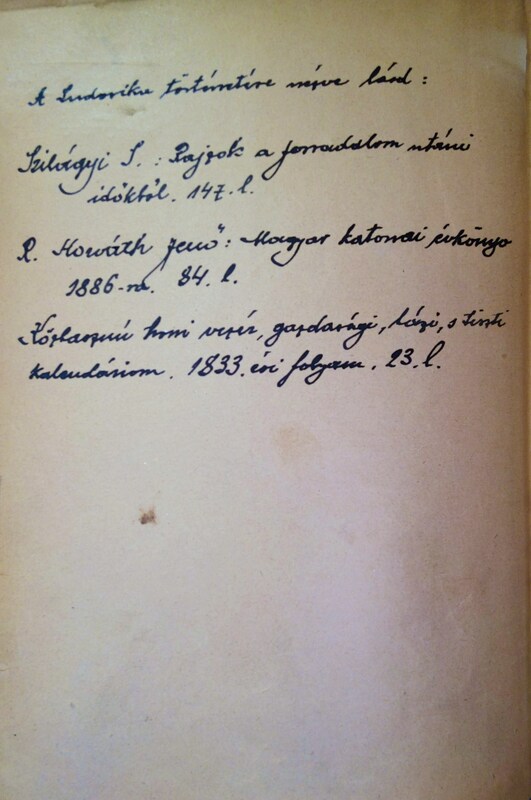 A Ludovika történetére nézve lásd:
Szilágyi S.: Rajzok a forradalom utáni
időkből. 147. l.
R. Horváth Jenő: Magyar katonai évkönyv
1886-ra. 84. l.
Közhasznú honi vezér, gazdasági, házi, s tiszti
kalendáriom. 1833. évi folyam. 23. l.